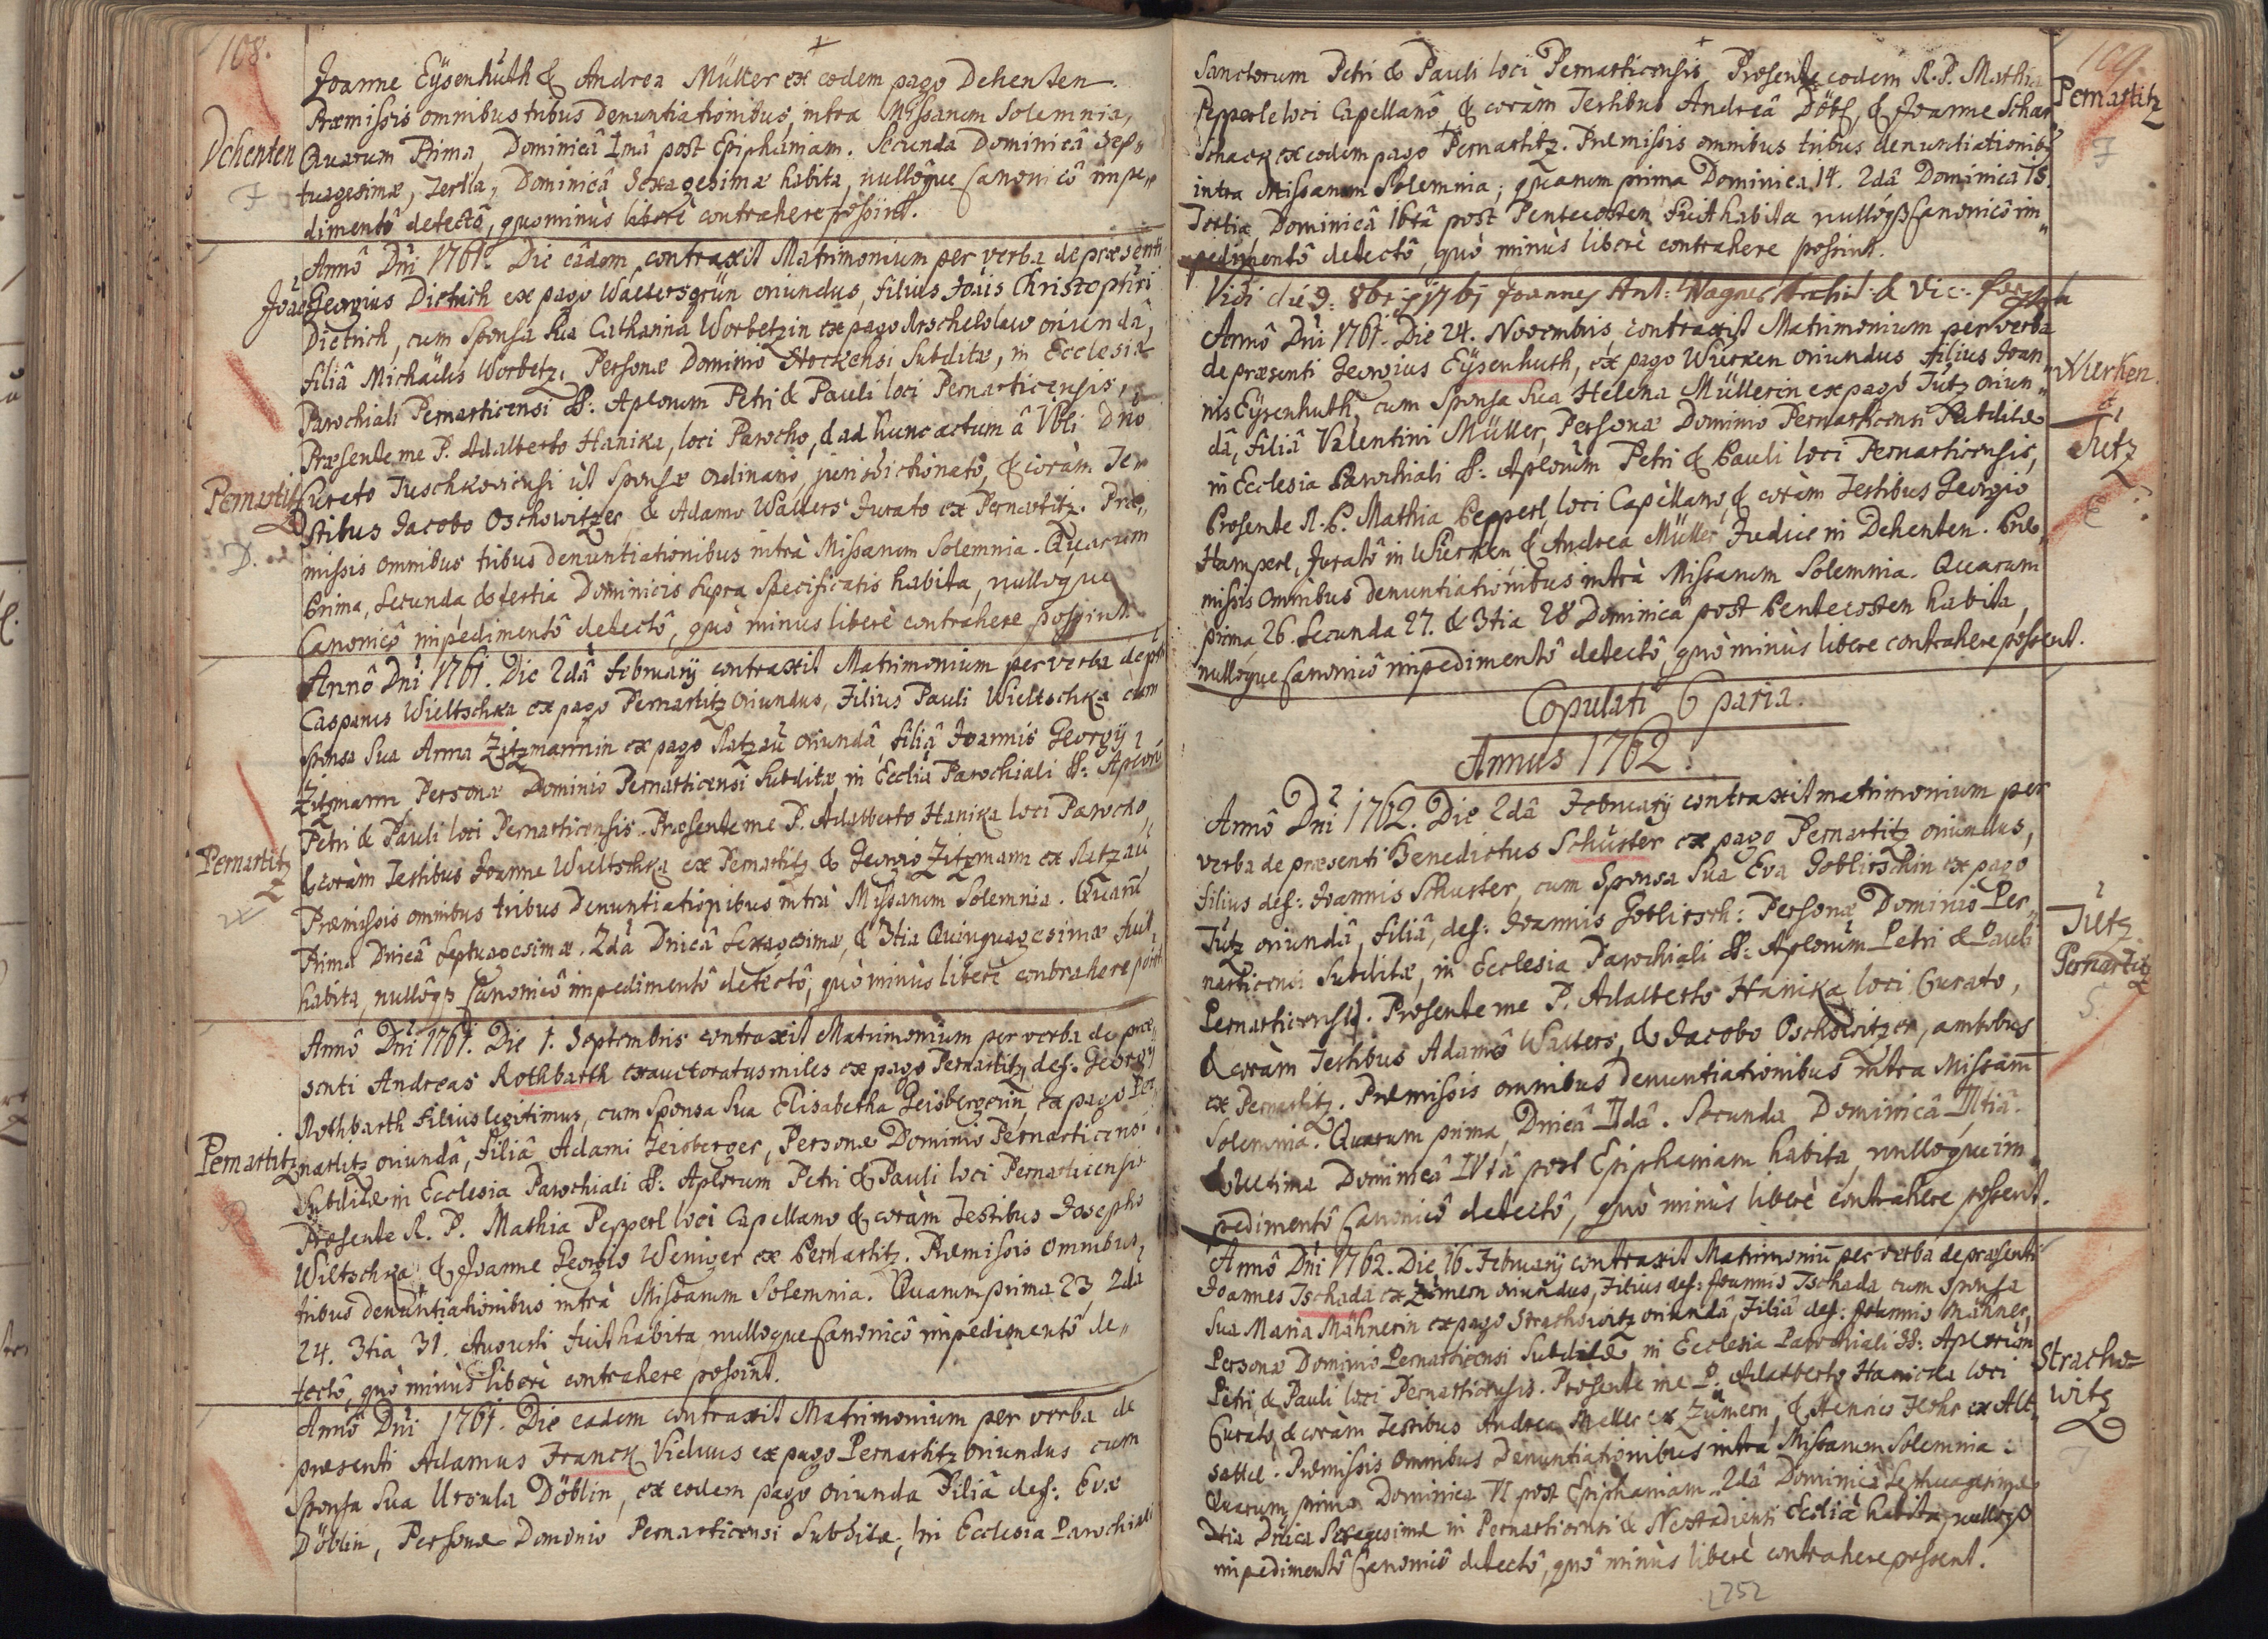 108.
Joanne Eÿsenhuth & Andrea Müller ex eodem pago Dehenten.
Præmissis omnibus tribus Denuntiationibus, intra Missarum Solemnia,
Dehenten
Quarum Prima, Dominicâ 1mâ post Epiphaniam. Secunda Dominicâ Sep„
tuagesimæ, Tertia, Dominicâ Sexagesimæ habita, nullôque Canonicô impe„
F
dimentô detectô, quominùs liberè contrahere possint.
Annô Dni 1761. Die eâdem contraxit Matrimonium per verba de præsenti
Joan Georgius Dietrich ex pago Waltersgrün oriundus, filius Joãis Christophori
Dietrich, cum Sponsa Sua Catharina Worbetzin ex pago oriundâ,
filiâ Michaelis Worbetz, Personæ Dominio Stockensi Subditæ, in Ecclesia
Parochiali Pernarticensi SS: Aplorum Petri & Pauli loci Pernarticensis,
Præsente me P. Adalberto Hanika, loci Parocho, & ad hunc actum â Vbli Dno
Pernartitz
Curato Tuschkovicensi ut Sponsæ Ordinario, jurisdictionato, & coràm Te„
stibus Jacobo Oschowitzer & Adamo Walters Jurato ex Pernartitz. Præ„
D.
missis omnibus tribus denuntiationibus intrà Missarum Solemnia. Quarum
Prima, Secunda & tertia Dominicis supra specificatis habita, nulloque
Canonicô impedimentô detectô, quò minùs liberè contrahere possint.
Annô Dni 1761. Die 2dâ Februarÿ contraxit Matrimonium per verba de pñti
Casparus Wieltschka ex pago Pernartitz oriundus, Filius Pauli Wieltschka cum
sponsa Sua Anna Zitzmannin ex pago Ratzau oriundâ, filiâ Joannis Georgÿ
Zitzmann Personæ Dominio Pernarticensi Subditæ, in Ecclia Parochiali SS: Aplorũ
Petri & Pauli loci Pernarticensis. Præsente me P. Adalberto Hanika loci Parocho,
Pernartitz
& coràm Testibus Joanne Wieltschka ex Pernartitz & Georgio Zitzmann ex Ratzau
Præmissis omnibus tribus Denuntiationibus intrà Missarum Solemnia. Quarũ
Prima Dnicâ Septuagesimæ. 2dâ Dnicâ Sexagesimæ, & 3tia Quinquagesimæ fuit
habita, nullôqz Canonicô impedimentô detectô, quò minùs liberè contrahere possint
Annô Dni 1761. Die 1. Septembris contraxit Matrimonium per verba de præ„
senti Andreas Rothbarth exauctoratus miles ex pago Pernartitz, def: Georgÿ
Rothbarth Filius legitimus, cum Sponsa Sua Elisabetha Geisbergerin, ex pago Per„
Pernartitz
nartitz oriundâ, filiâ Adami Geisberger, Personæ Dominio Pernarticensi
Subditæ in Ecclesia Parochiali SS: Aplorum Petri & Pauli loci Pernarticensis
R
Præsente R. P. Mathia Pepperl loci Capellano & coràm Testibus Josepho
Wiltschka & Joanne Georgio Weniger ex Pernartitz. Præmissis omnibus
tribus denuntiationibus intrà Missarum Solemnia. Quarum prima 23, 2da
24. 3tia 31. Augusti fuit habita nulloque Canonicô impedimentô de„
tectô, quò minùs liberè contrahere possint.
Annô Dni 1761. Die eadem contraxit Matrimonium per verba de
præsenti Adamus Franck Viduus ex pago Pernartitz oriundus cum
Sponsa Sua Ursula Döblin, ex eodem pago oriunda Filiâ def: Evæ
Döblin, Personæ Dominio Pernarticensi Subditæ, in Ecclesia Parochiali
109.
Sanctorum Petri & Pauli loci Pernarticensis, Præsente eodem R. P. Mathia
Pernartitz
Pepperle loci Capellanô, & coràm Testibus Andreâ Döbl, & Joanne
Schack ex eodem pago Pernartitz. Præmissis omnibus tribus denuntiationib9
F
intra Missarum Solemnia; quarum prima Dominica 14. 2dâ Dominica 15.
Tertia Dominicâ 16tâ post Pentecosten fuit habita nullôqz Canonicô im„
pedimentô detectô, quò minùs liberè contrahere possint.
Vidi die 9. 8bris 1761 Joannes Ant: Wagner Archid: & Vic:
Annô Dni 1761. Die 24. Novembris contraxit Matrimonium per verba
de præsenti Georgius Eÿsenhuth, ex pago Wurken oriundus filius Joan„
Wurken
nis Eÿsenhuth, cum Sponsa Sua Helena Müllerin ex pago Tutz oriun„
&
dâ, filiâ Valentini Müller, Personæ Dominio Pernarticensi Subditæ
Tutz
in Ecclesia Parochiali SS: Aplorùm Petri & Pauli loci Pernarticensis,
Præsente R. P. Mathia Pepperl, loci Capellano, & coràm Testibus Georgio
E
Hamperl, Juratô in Wurken & Andrea Müller Judice in Dehenten. Præ„
missis Omnibus denuntiationibus intrà Missarum Solemnia. Quarum
prima 26. Secunda 27. & 3tia 28 Dominica post Pentecosten habita,
nulloque Canonicô impedimentô detectô, quò minùs libere contrahere possent.
Copulati 6 paria.
Annus 1762.
Annô Dni 1762. Die 2dâ Februarÿ contraxit matrimonium per
verba de præsenti Benedictus Schuster ex pago Pernartitz oriundus,
filius def: Joannis Schuster, cum Sponsa Sua Eva Goblirschin ex pago
Tutz
Tutz oriundâ, filiâ, def: Joannis Goblirsch: Personæ Dominio Per„
Pernartitz
narticensi Subditæ, in Ecclesia Parochiali SS: Aplorùm Petri & Pauli
S.
Pernarticensis. Præsente me P. Adalberto Hanika loci Curato,
& coràm Testibus Adamô Walters, & Jacobo Oschowitzer, ambobus
ex Pernartitz. Præmissis omnibus Denuntiationibus intra Missarũ
Solemnia. Quarum prima Dnicâ IIdâ. Secunda Dominicâ IIItiâ.
& Ultima Dominicâ IVtâ post Epiphaniam habita, nulloque im„
pedimentô Canonicô detectô, quò minùs liberè contrahere possent.
Annô Dni 1762. Die 16. Februarÿ contraxit Matrimoniũ per verba de præsenti
Joannes Tschada ex Zumern oriundus, Filius def: Joannis Tschada cum Sponsa
Sua Maria Mähnerin ex pago Strachowitz oriundâ, Filiâ def: Joannis Mähner,
Personæ Dominio Pernarticensi Subditæ in Ecclesia Parochiali SS: Aplorùm
Stracho=
Petri, & Pauli loci Pernarticensis. Præsente me P. Adalberto Hanicka loci
witz
Curato, & coràm Testibus Andrea Meller ex Zumern, & Henrico ex Alt„
sattel. Præmissis Omnibus Denuntiationibus intrà Missarum Solemnia:
T
Quarum prima Dominica VI post Epiphaniam. 2dâ Dominica Septuagesimæ
3tia Dnica Sexagesimæ in Pernarticensi & Neostadiensi Eccliâ habita, nulloqz
impedimentô Canonicô detectô, quò minùs liberè contrahere possent.